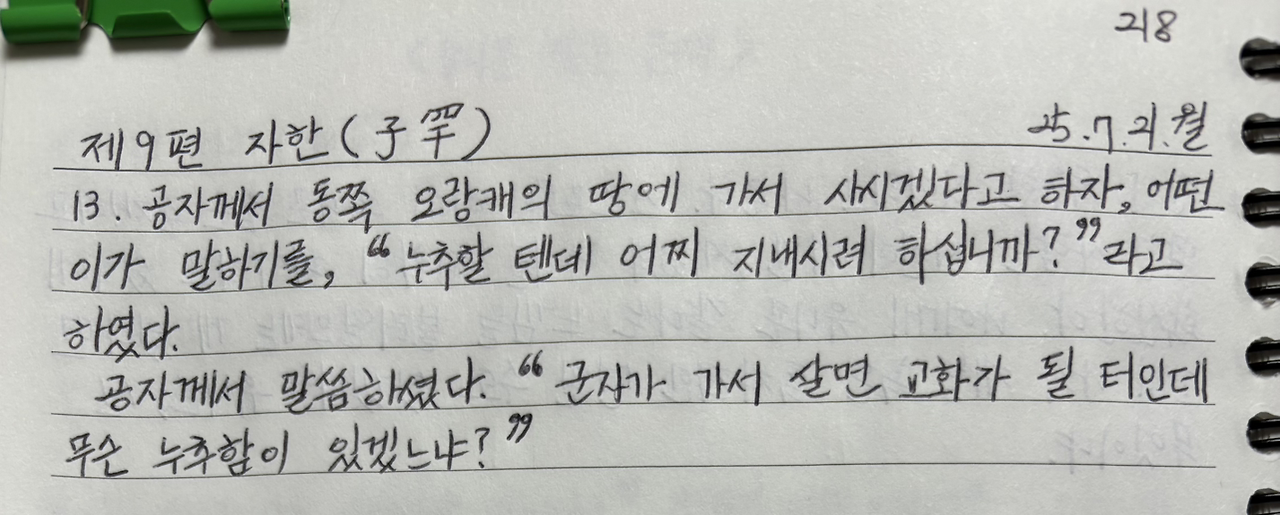 218
제9편 자한(子罕) 25.7.21.월
13. 공자께서 동쪽 오랑캐의 땅에 가서 사시겠다고 하자, 어떤
이가 말하기를, "누추할 텐데 어찌 지내시려 하십니까?"라고
하였다.
공자께서 말씀하셨다. "군자가 가서 살면 교화가 될 터인데
무슨 누추함이 있겠느냐?"